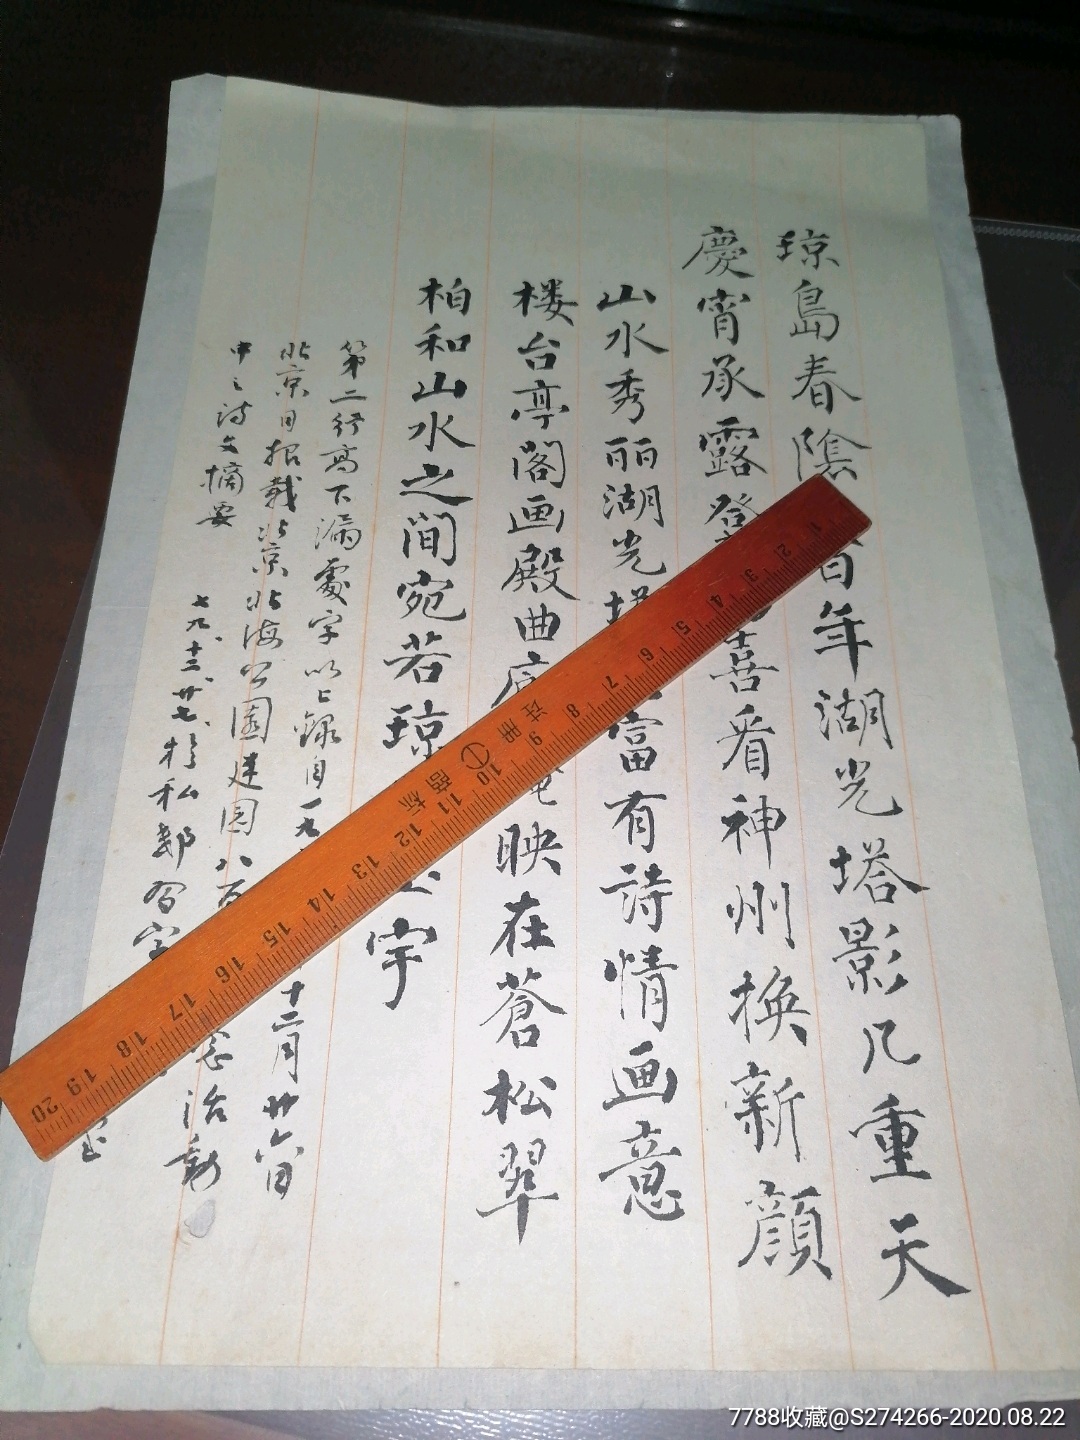 琼島春陰百年湖光塔影几重天
慶宵承露登喜看神州换新顔
山水秀丽湖光塔富有詩情画意
楼台亭閣画殿曲映在蒼松翠
柏和山水之間宛若琼宇
第二行高下漏處字以上録自一九十二月廿六日
北京日报載北京北海公園建园八百念活動
中之詩文摘要
七九、十二、廿七、於私邸習字
1 2 3 4 5 6 7 8 9 10 11 12 13 14 15 16 17 18 19 20
注册商标
7788收藏@S274266-2020.08.22